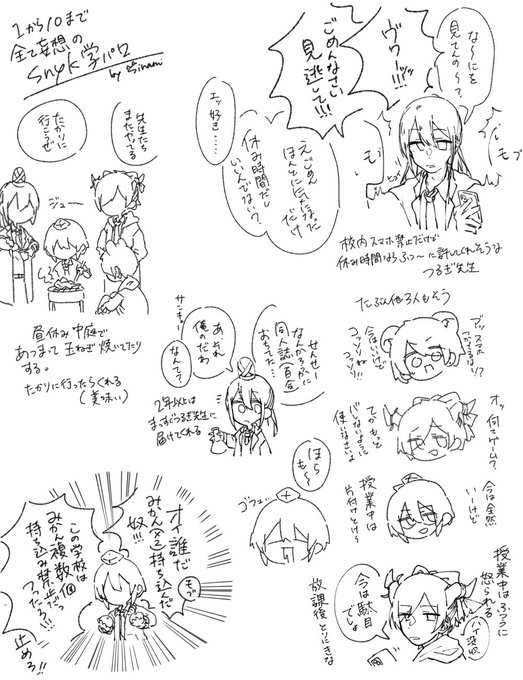 1から10まで
全て妄想の
snyk学パロ
な〜にを
見てんの〜?
ヴワーッ!!
ごめんなさい
見逃して!!!
モブ
モブ
えごめん
ほんとに気になった
だけ
休み時間だし
いいんでない?
エッ好き……
校内スマホ禁止だけど
休み時間ならふつ〜に許してくれそうな
つるぎ先生
先生たち
またやってる
たかりに
行こうぜ
ジュー
昼休み中庭で
あつまって玉ねぎ焼いてたり
する。
たかりに行ったらくれる
(美味い)
せんせー
なんかろうかに
同人誌(百合)
おちてた…
あ、それ
俺のだわ
サンキュー
なんて?
2年以上は
まっすぐつるぎ先生に
届けてくれる
たぶん他3人もそう
ブッスマホ
今はいいけど
コッソリね
コッソリ!!
オッ何てゲーム?
てかもっと
バレないように
使いなさいよ
今は全然
いーけど
授業中は
片付けとけ〜
ほら
も〜
ゴフッ…
授業中はふつうに
怒られる
ハイ没収
今は駄目
でしょ
放課後とりにきな
オイ誰だ
みかん×2持ち込んだ
奴!!!
モブ
この学校は
みかん複数個
持ち込み禁止だっ
つったろ!!
止めろ!!